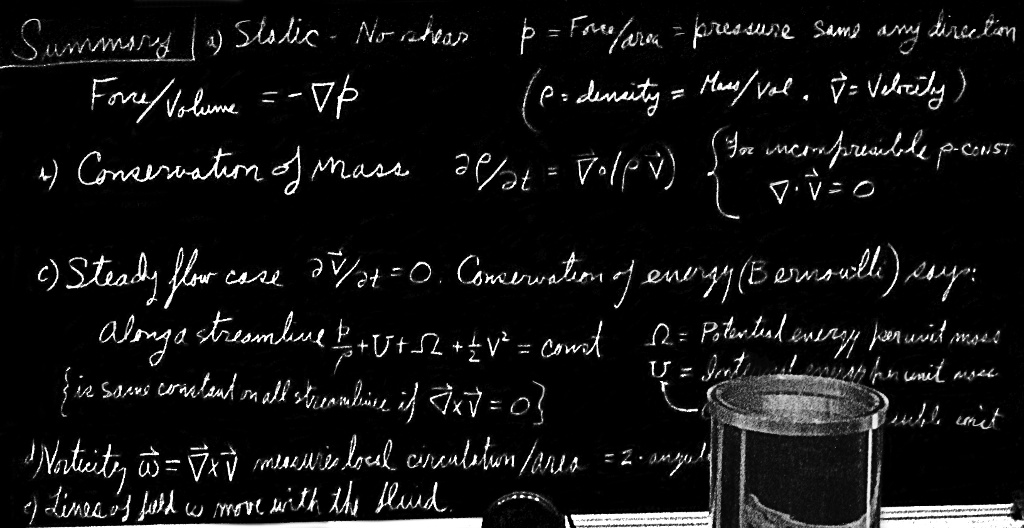 Summary a) Static - No shear p = Force/area = pressure same any direction
Force/Volume = -∇p (ρ = density = Mass/Vol. v⃗ = Velocity)
b) Conservation of mass ∂ρ/∂t = ∇⃗·(ρv⃗) {For incompressible ρ-CONST
∇·v⃗ = 0
c) Steady flow case ∂v⃗/∂t = 0. Conservation of energy (Bernouilli) says:
Along a streamline p/ρ + U + Ω + ½v² = const Ω = Potential energy per unit mass
U = Internal energy per unit mass
{is same constant on all streamlines if ∇⃗×v⃗ = 0} const
d) Vorticity ω⃗ = ∇⃗×v⃗ measures local circulation/area = 2·angul
e) Lines of field ω move with the fluid.